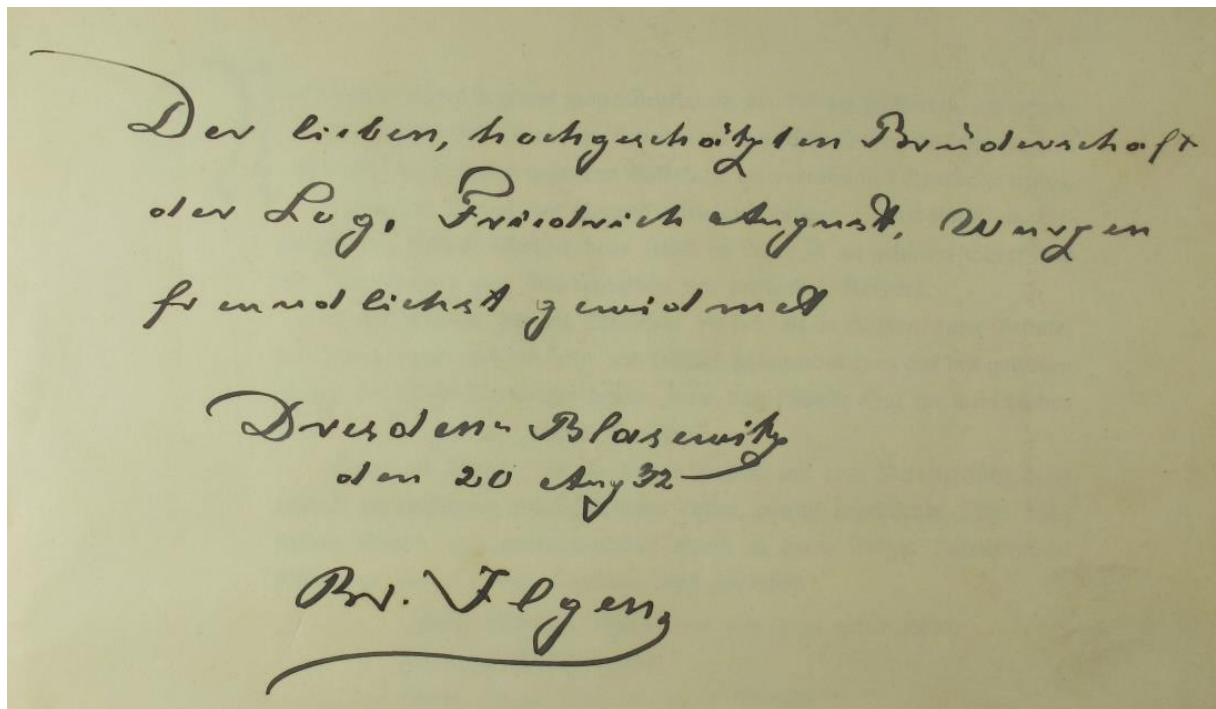 Der lieben, hochgeschätzten Brüderschaft
der Log. Friedrich August, Wurzen
freundlichst gewidmet
Dresden-Blasewitz
den 20 Aug 32
Br. Ilgen